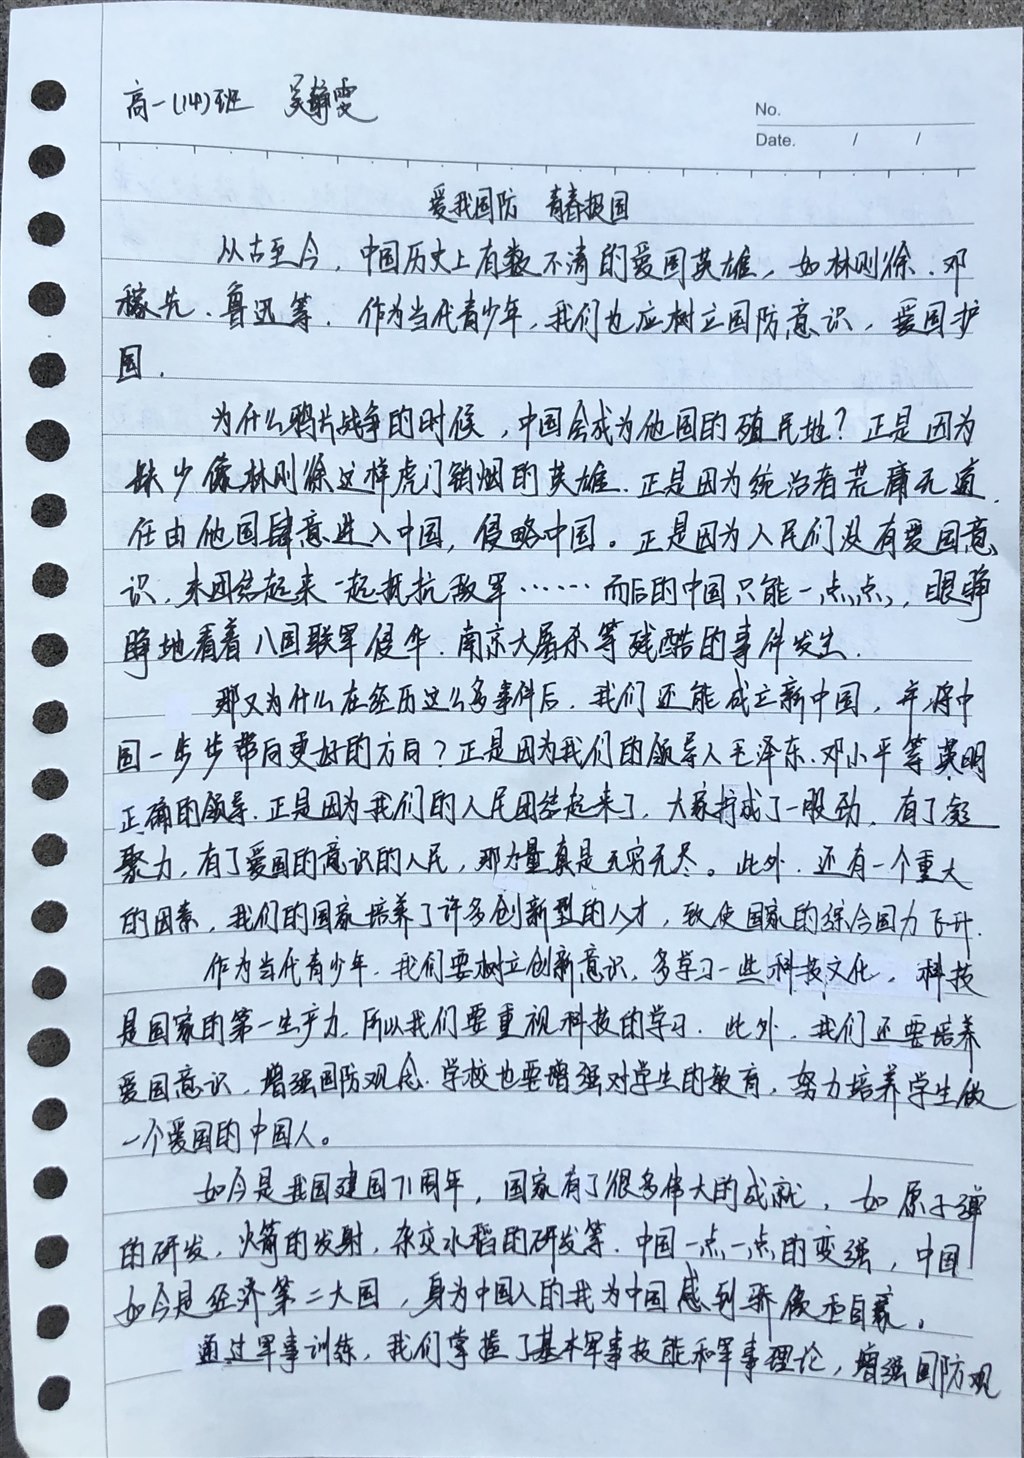 高一(14)班 吴静雯
No.
Date. / /
爱我国防 青春报国
从古至今，中国历史上有数不清的爱国英雄，如林则徐、邓
稼先、鲁迅等．作为当代青少年，我们也应树立国防意识，爱国护
国．
为什么鸦片战争的时候，中国会成为他国的殖民地？正是因为
缺少像林则徐这样虎门销烟的英雄．正是因为统治者荒庸无道，
任由他国肆意进入中国，侵略中国。正是因为人民们没有爱国意
识，未团结起来一起抵抗敌军……而后的中国只能一点点，眼睁
睁地看着八国联军侵华、南京大屠杀等残酷的事件发生．
那又为什么在经历这么多事件后，我们还能成立新中国，并将中
国一步步带向更好的方向？正是因为我们的领导人毛泽东、邓小平等英明
正确的领导．正是因为我们的人民团结起来了，大家拧成了一股劲，有了凝
聚力，有了爱国的意识的人民，那力量真是无穷无尽。此外，还有一个重大
的因素，我们的国家培养了许多创新型的人才，致使国家的综合国力飞升．
作为当代青少年，我们要树立创新意识，多学习一些科技文化，科技
是国家的第一生产力，所以我们要重视科技的学习．此外，我们还要培养
爱国意识，增强国防观念．学校也要增强对学生的教育，努力培养学生做
一个爱国的中国人。
如今是我国建国71周年，国家有了很多伟大的成就，如原子弹
的研发，火箭的发射，杂交水稻的研发等．中国一点一点的变强，中国
如今是经济第二大国，身为中国人的我为中国感到骄傲和自豪。
通过军事训练，我们掌握了基本军事技能和军事理论，增强国防观